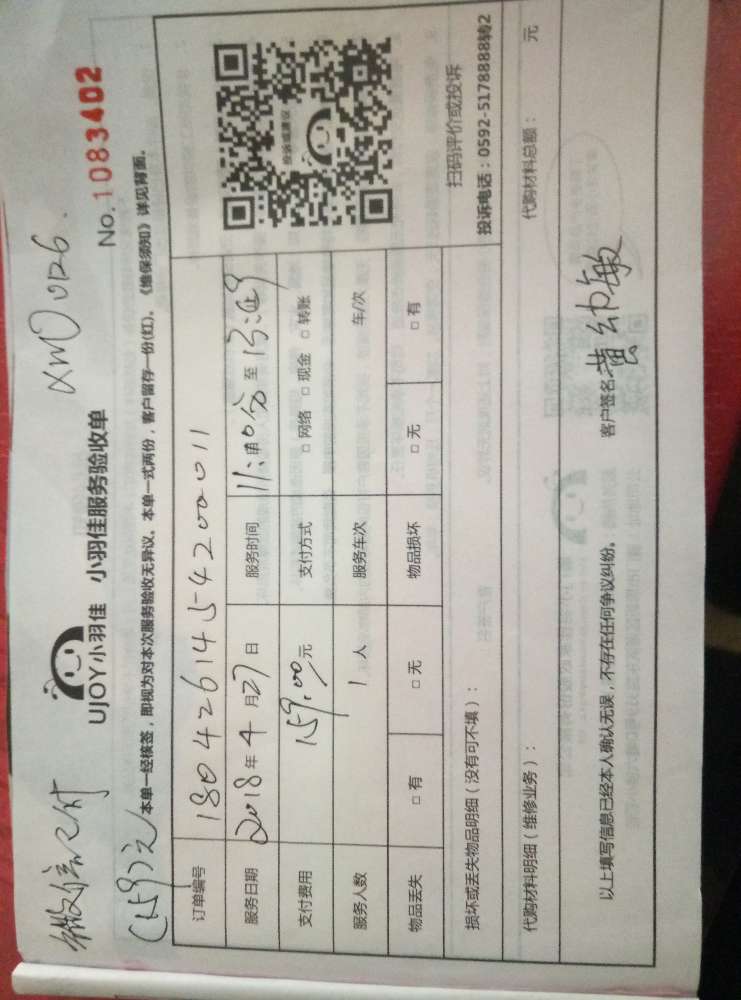 微信已付
(159)元
XM00126.
UJOY小羽佳 小羽佳服务验收单
No. 1083402
本单一经核签，即视为对本次服务验收无异议。本单一式两份，客户留存一份(红)。《维保须知》详见背面。
订单编号 1804261454200011
服务日期 2018年4月27日 服务时间 至
支付费用 159.00元 支付方式 □网络 □现金 □转账
服务人数 1人 服务车次 车/次
物品丢失 □有 □无 物品损坏 □无 □有
投诉或建议
扫码评价或投诉
投诉电话：0592-5178888转2
损坏或丢失物品明细（没有可不填）：
代购材料明细（维修业务）： 代购材料总额： 元
以上填写信息已经本人确认无误，不存在任何争议纠纷。 客户签名：黄幼敏